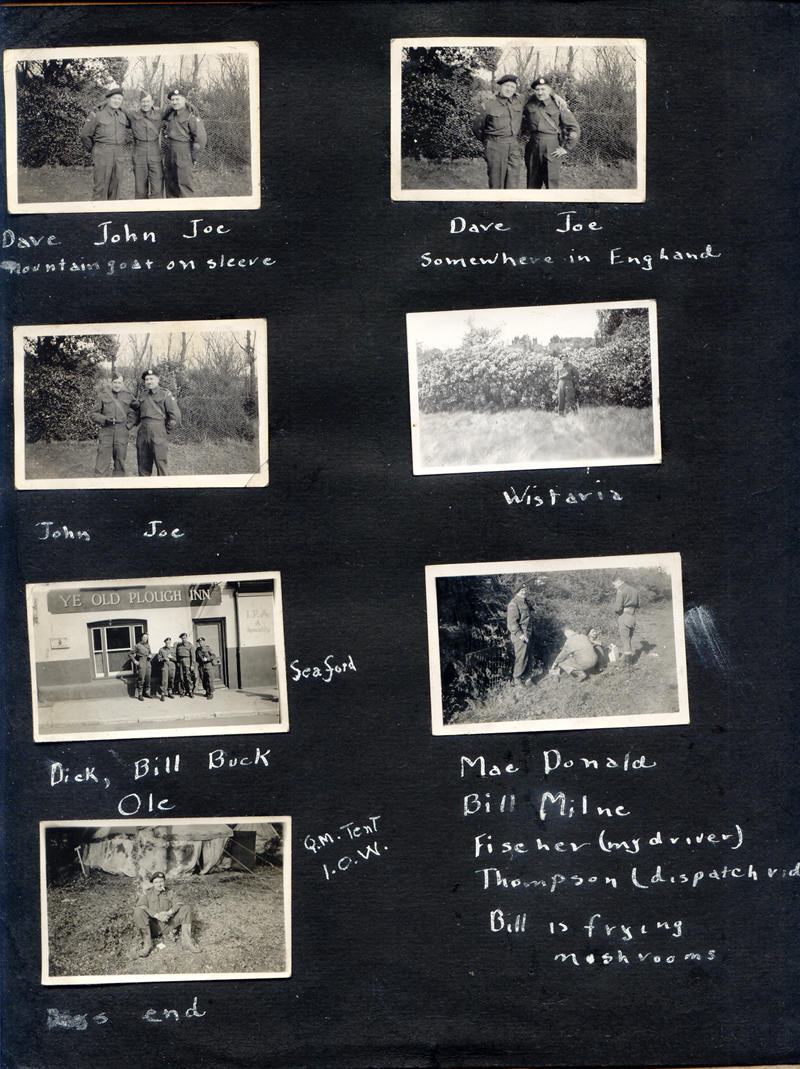 Dave John Joe
Mountain goat on sleeve
Dave Joe
Somewhere in England
John Joe
Wistaria
YE OLD PLOUGH INN
I.P.A
&
Seaford
Dick, Bill Buck
Ole
Mac Donald
Bill Milne
Fischer (my driver)
Thompson (dispatch rid
Bill is frying
mushrooms
Q.M. Tent
I.O.W.
Days end